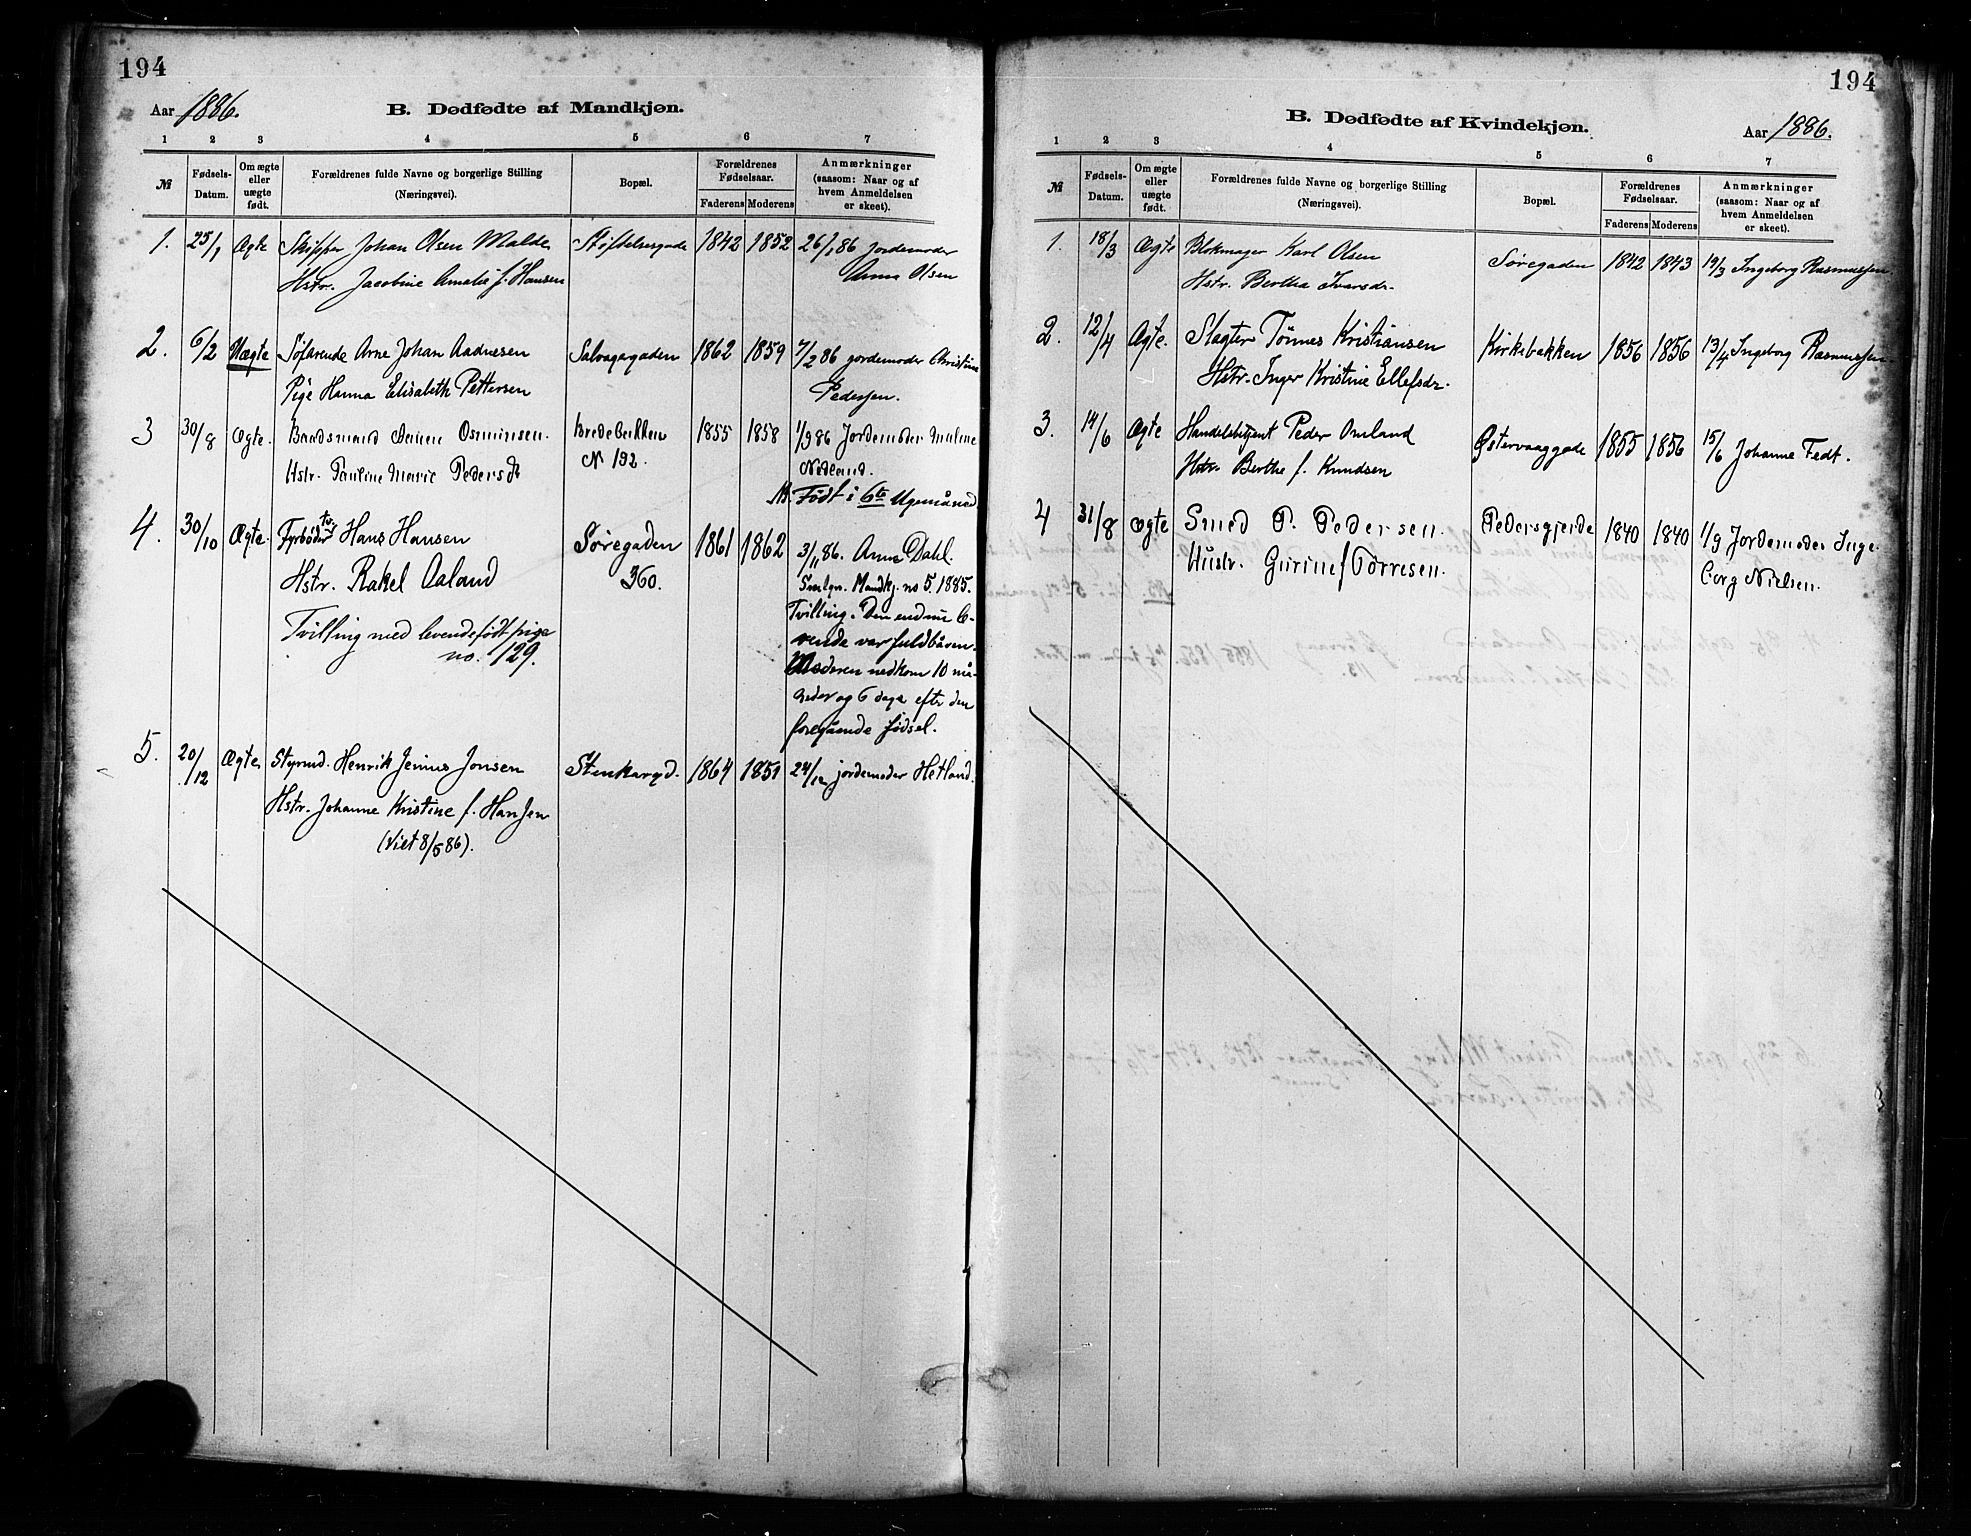 194
Aar 1886.
B. Dødfødte af Mandkjøn.
1 2 3 4 5 6 7
№ Fødsels-Datum. Om ægte eller uægte født. Forældrenes fulde Navne og borgerlige Stilling (Næringsvei). Bopæl. Forældrenes Fødselsaar. Faderens Moderens Anmærkninger (saasom: Naar og af hvem Anmeldelsen er skeet).
1. 25/1 Ægte Skipper Johan Olsen Malde Stiftelsesgade 1842 1852 26/1 86 Jordemoder
Hstr. Jacobine Amalie f. Hansen Anna Olsen
2. 6/2 Uægte Søfarende Arne Johan Aadnesen Salvagergaden 1862 1859 7/2 86 jordemoder Christine
Pige Hanna Elisabeth Pettersen Pedersen.
3 30/8 Ægte. Baadsmand Osmunsen. Bredebakken 1855 1858 1/9 86 Jordemoder Maline
Hstr. Pauline Marie Pedersdt N 192. Nødland.
NB. Født i 6te Ugemåned
4. 30/10 Ægte. Fyrbøder Hans Hansen Søregaden 1861 1862 3/11 86. Anna Dahl.
Hstr. Rakel Aaland 360. Smlgn. Mandkj. no 5. 1885.
Tvilling med levendefødt pige Tvilling. Den endnu le-
no. 129. vende var fuldbåren.
Moderen nedkom 10 må-
neder og 6 dage efter den
foregående fødsel.
5. 20/12 Ægte. Styrmd. Henrik Jenius Jonsen Stenkargd. 1864 1851 24/12 jordemoder Hetland.
Hstr. Johanne Kristine f. Hansen
(Viet 8/5 86).
194
B. Dødfødte af Kvindekjøn.
Aar 1886.
1 2 3 4 5 6 7
№ Fødsels-Datum. Om ægte eller uægte født. Forældrenes fulde Navne og borgerlige Stilling (Næringsvei). Bopæl. Forældrenes Fødselsaar. Faderens Moderens Anmærkninger (saasom: Naar og af hvem Anmeldelsen er skeet).
1. 18/3 Ægte Blokmager Karl Olsen Søregaden 1842 1843 19/3 Ingeborg Rasmussen
Hstr. Bertha Ivarsdr.
2. 12/4 Ægte. Slagter Tønnes Kristiansen Kirkebakken 1856 1856 13/4 Ingeborg Rasmussen
Hstr. Inger Kristine Ellefsdr.
3. 14/6 Ægte Handelsbetjent Peder Omland Østervaaggade 1855 1856 15/6 Johanne Fedt.
Hstr. Berthe f. Knudsen
4 31/8 Ægte Smed P. Pedersen. Pedersgjerde 1840 1840 1/9 Jordemoder Inge-
Hustr. Gurine f Tørresen. borg Nielsen.